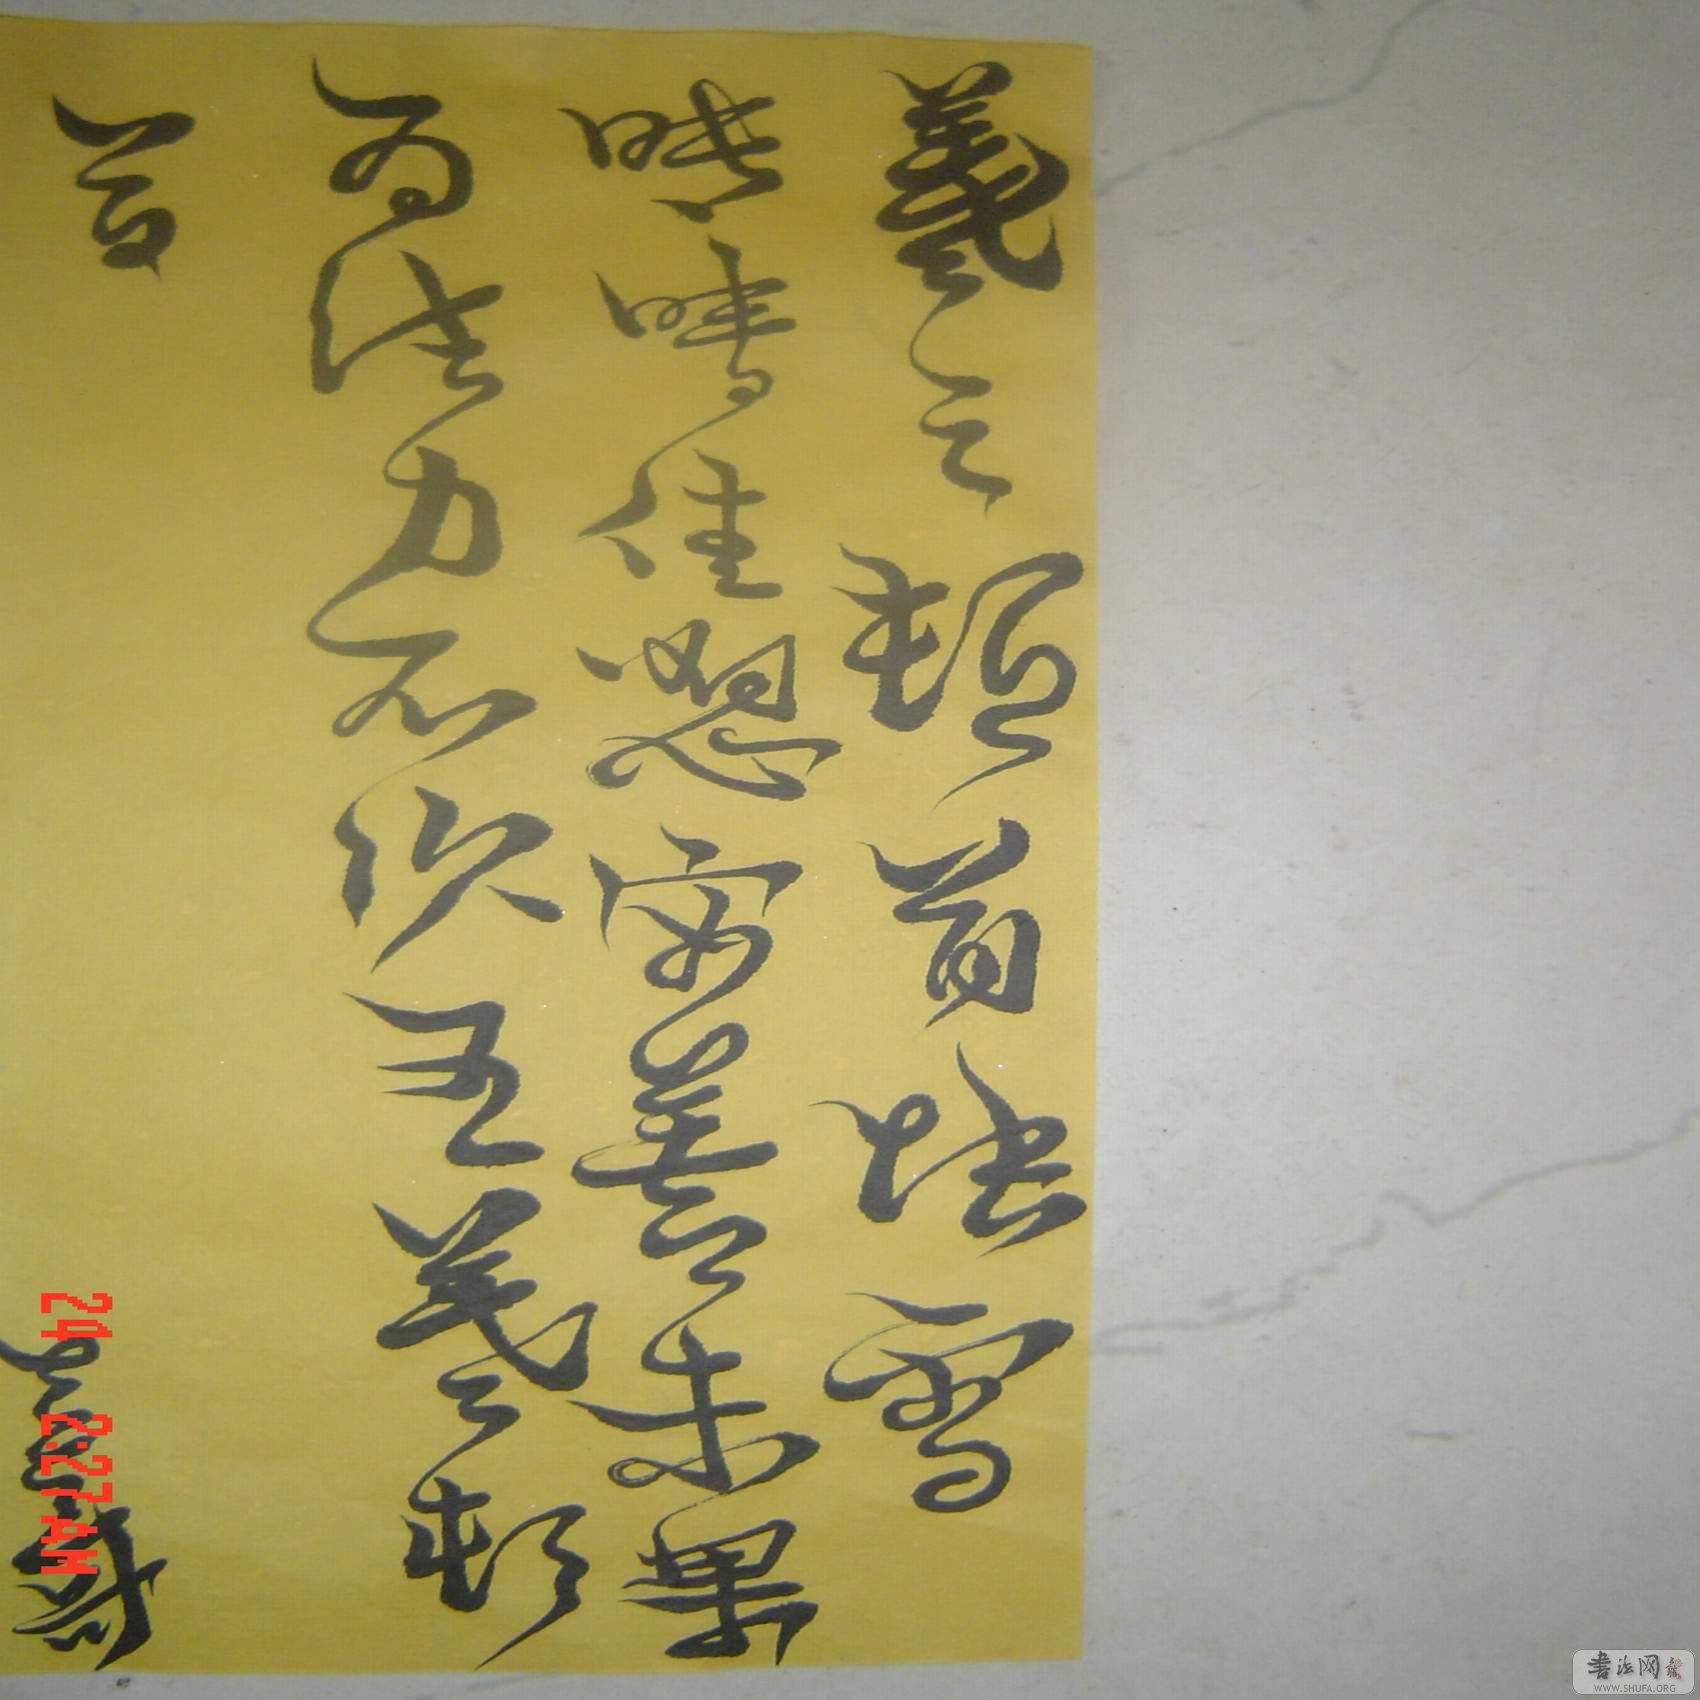 羲之頓首快雪
時晴佳想安善未果
为结力不次王羲之頓
首
24 2:27AM
書法网
WWW.SHUFA.ORG